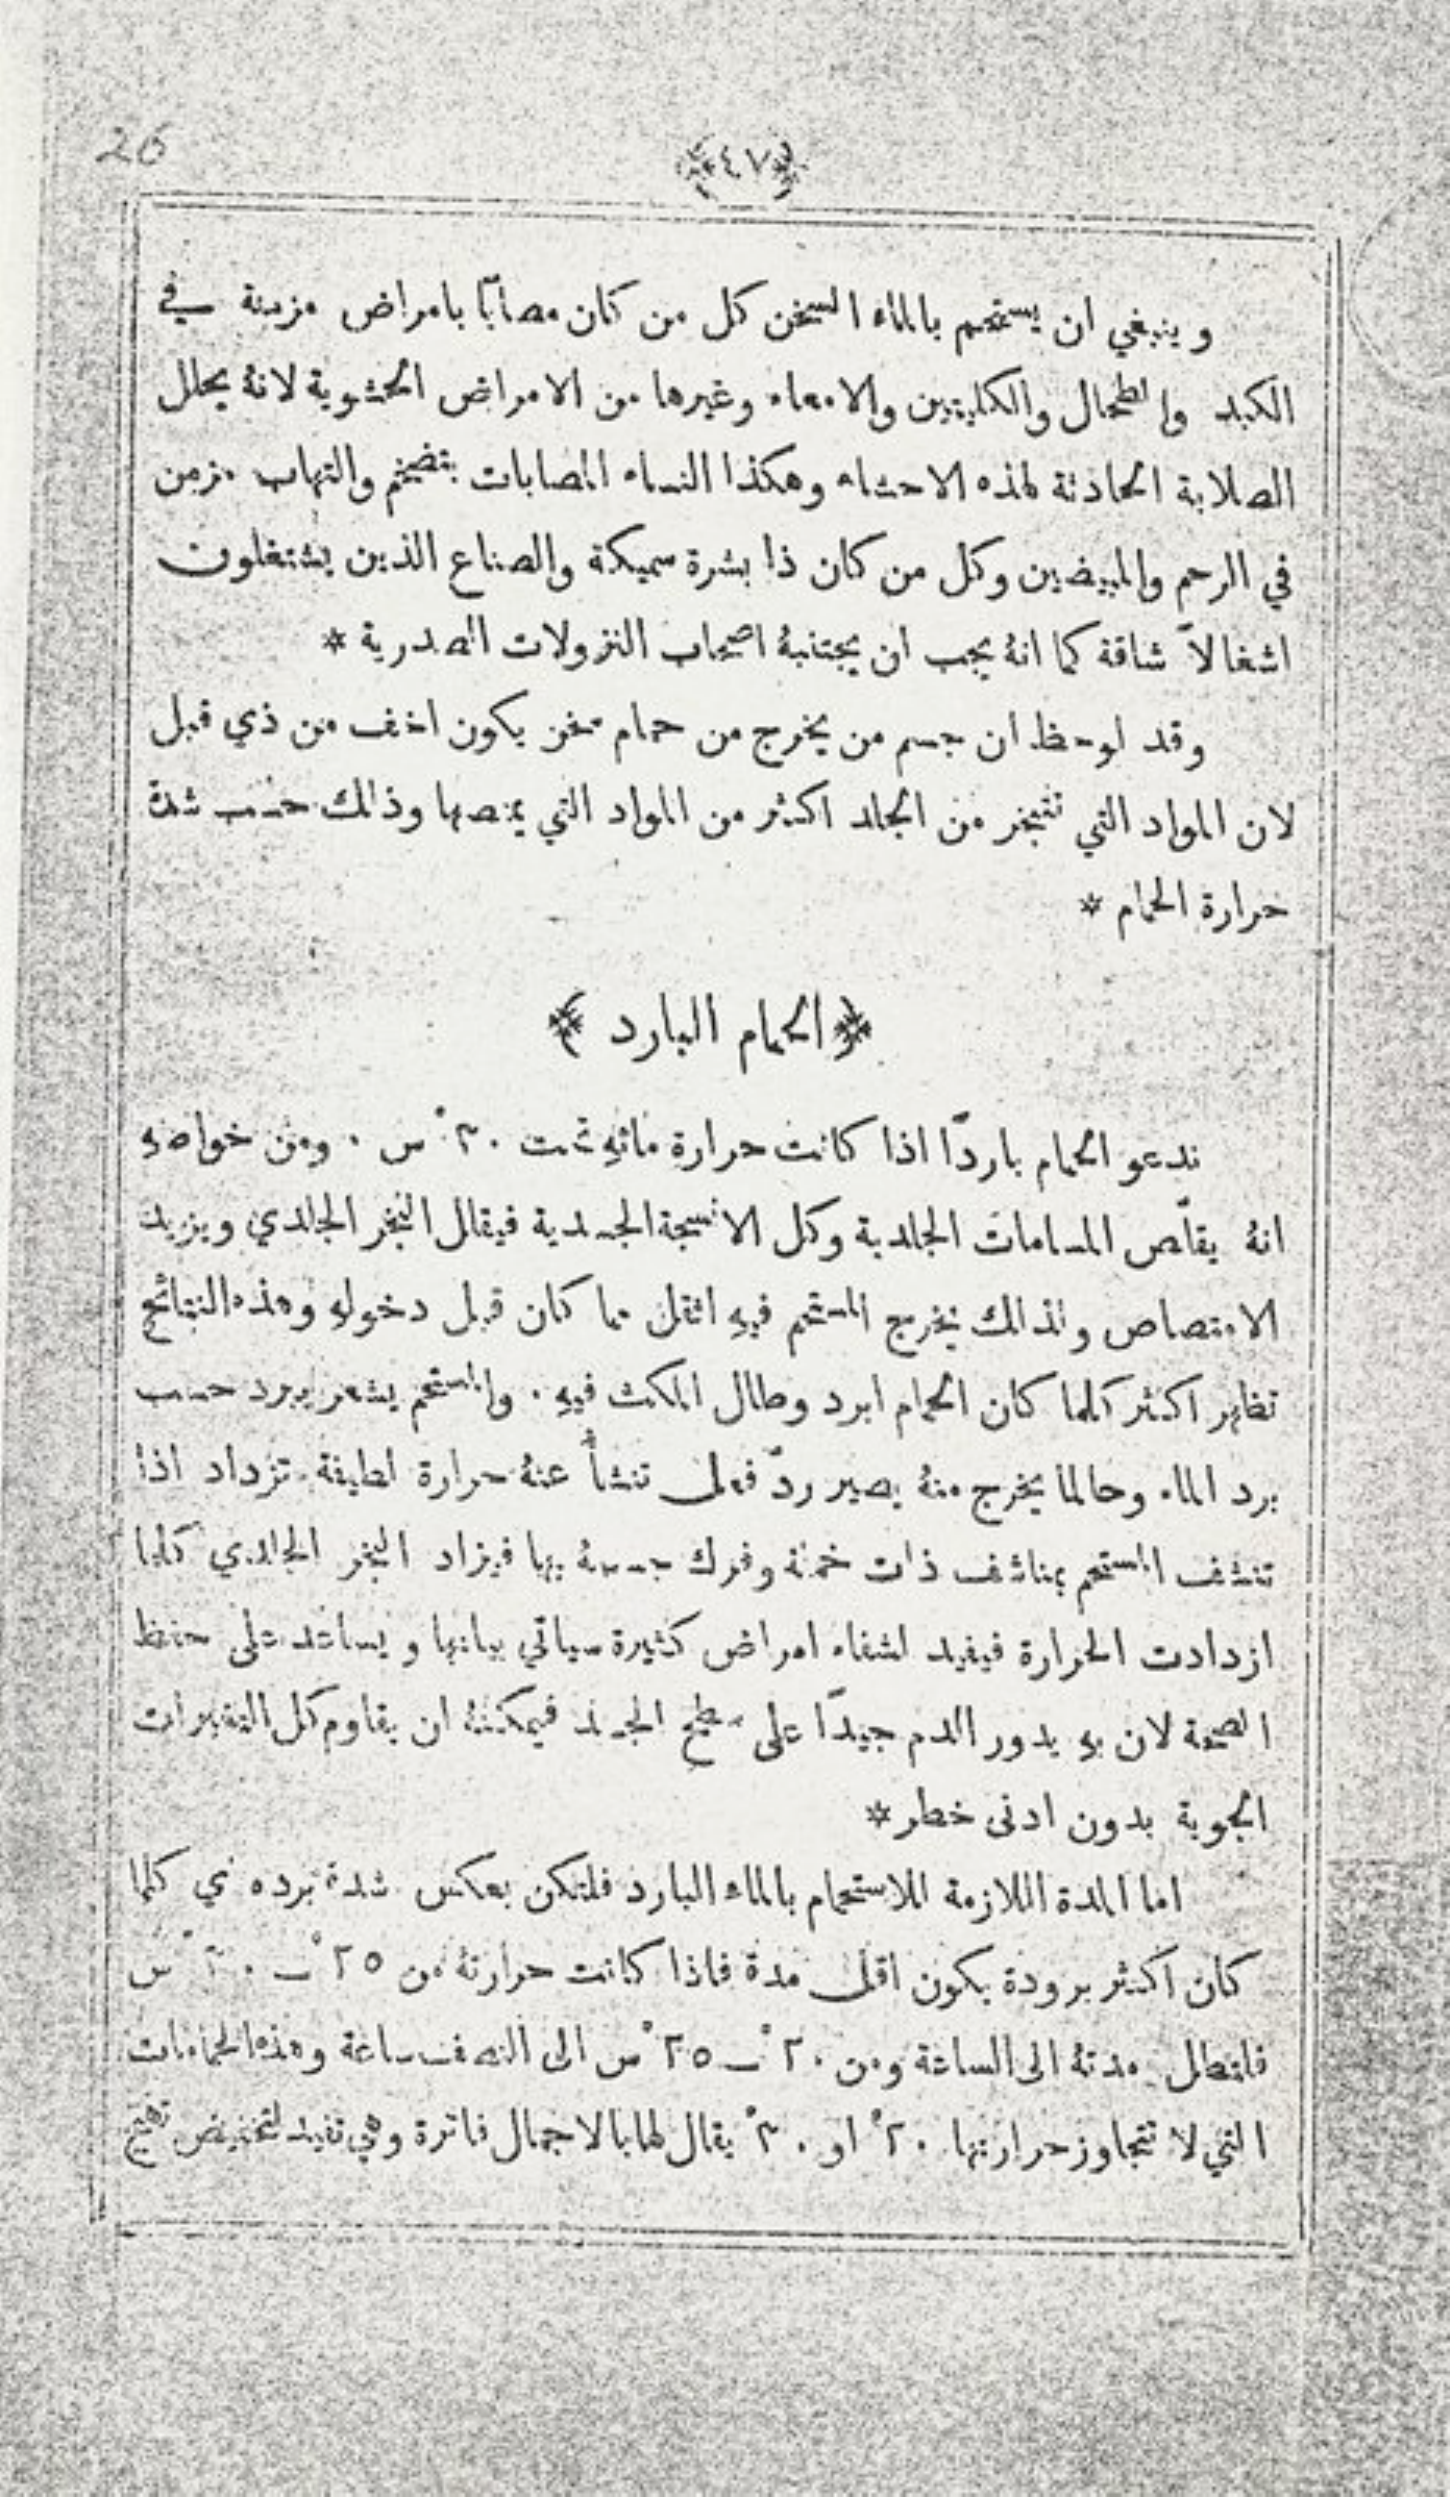 26
﴿٤٧﴾
وينبغي ان يستحم بالماء السخن كل من كان مصابًا بامراض مزمنة في
الكبد والطحال والكليتين والامعاء وغيرها من الامراض الحشوية لانهُ يحلل
الصلابة الحادثة لهذه الاحشاء وهكذا النساء المصابات بتضخم والتهاب مزمن
في الرحم والمبيضين وكل من كان ذا بشرة سميكة والصناع الذين يشتغلون
اشغالاً شاقة كما انهُ يجب ان يجتنبهُ اصحاب النزولات الصدرية *
وقد لوحظ ان جسم من يخرج من حمام سخن يكون اخف من ذي قبل
لان المواد التي تتبخر من الجلد اكثر من المواد التي يمتصها وذلك حسب شدة
حرارة الحمام *
﴿الحمام البارد﴾
ندعو الحمام باردًا اذا كانت حرارة مائهِ تحت ٣٠ْ س ٠ ومن خواصهِ
انهُ يقلّص المسامات الجلدية وكل الانسجة الجسدية فيقلل التبخر الجلدي ويزيد
الامتصاص ولذلك يخرج المستحم فيهِ اثقل مما كان قبل دخولهِ وهذه النتائج
تظهر اكثر كلما كان الحمام ابرد وطال المكث فيهِ ٠ والمستحم يشعر ببرد حسب
برد الماء وحالما يخرج منهُ يصير ردّ فعل تنشأ عنهُ حرارة لطيفة تزداد اذا
تنشف المستحم بمناشف ذات خملة وفرك جسمهُ بها فيزاد التبخر الجلدي كلما
ازدادت الحرارة فيفيد لشفاء امراض كثيرة سياتي بيانها ويساعد على حفظ
الصحة لان بهِ يدور الدم جيدًا على سطح الجلد فيمكنهُ ان يقاوم كل التغيرات
الجوية بدون ادنى خطر *
اما المدة اللازمة للاستحمام بالماء البارد فلتكن بعكس شدة برده اي كلما
كان اكثر برودة يكون اقل مدة فاذا كانت حرارتهُ من ٢٥ْ ــ ٣٠ْ س
فلتطل مدتهُ الى الساعة ومن ٢٠ْ ــ ٢٥ْ س الى النصف ساعة وهذه الحمامات
التي لا تتجاوز حرارتها ٢٠ْ او ٣٠ْ يقال لها بالاجمال فاترة وهي تفيد لتخفيض تهيج